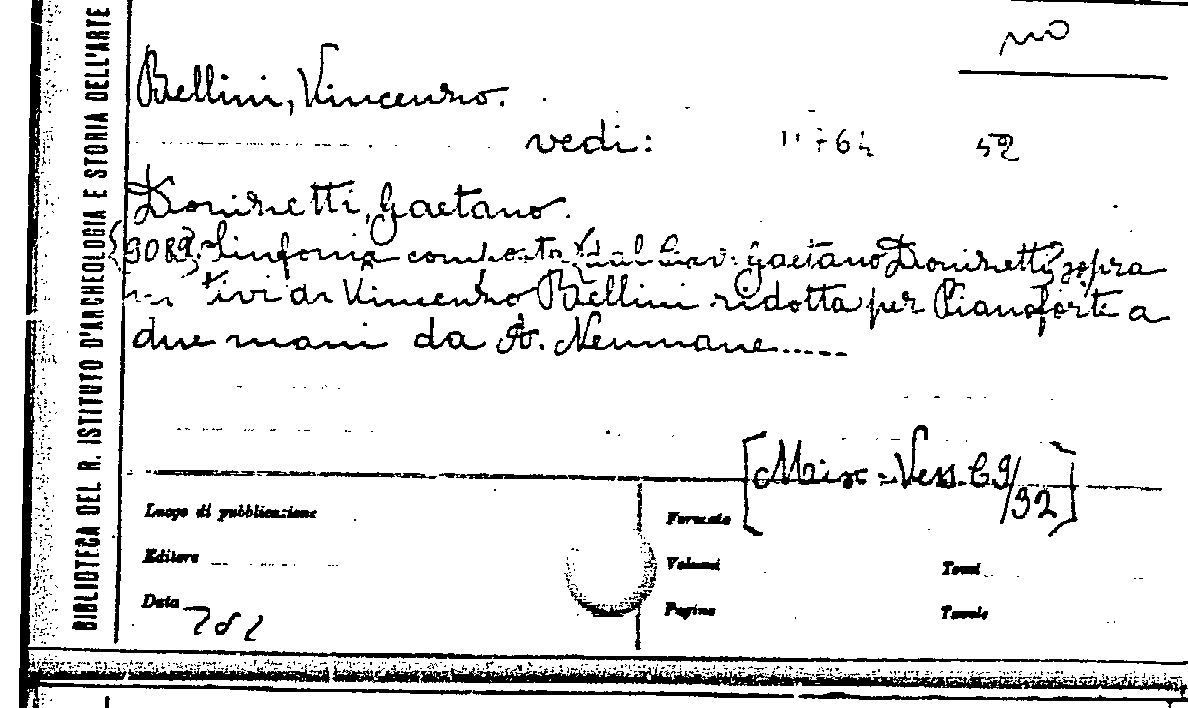 BIBLIOTECA DEL R. ISTITUTO D'ARCHEOLOGIA E STORIA DELL'ARTE
no
Bellini, Vincenzo.
vedi: 52
Donizetti, Gaetano.
Sinfonia composta dal Cav. Gaetano Donizetti sopra
motivi di Vincenzo Bellini ridotta per Pianoforte a
due mani da A. Neumane.....
[Misc. Vess. C 9/92]
Luogo di pubblicazione
Formato
Editore
Volumi
Tomi
Data
Pagine
Tavole